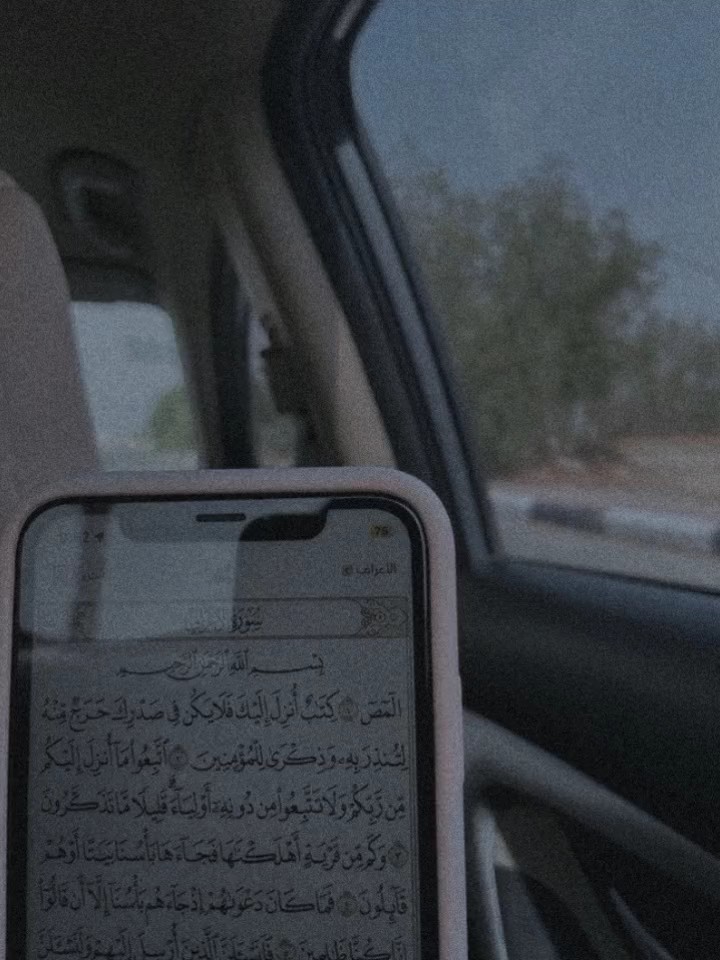 75
الأعراف
سُورَةُ
بِسْمِ ٱللَّهِ ٱلرَّحْمَٰنِ ٱلرَّحِيمِ
الٓمٓصٓ ١ كِتَٰبٌ أُنزِلَ إِلَيْكَ فَلَا يَكُن فِي صَدْرِكَ حَرَجٌ مِّنْهُ
لِتُنذِرَ بِهِۦ وَذِكْرَىٰ لِلْمُؤْمِنِينَ ٢ ٱتَّبِعُوا۟ مَآ أُنزِلَ إِلَيْكُم
مِّن رَّبِّكُمْ وَلَا تَتَّبِعُوا۟ مِن دُونِهِۦٓ أَوْلِيَآءَۗ قَلِيلًا مَّا تَذَكَّرُونَ
٣ وَكَم مِّن قَرْيَةٍ أَهْلَكْنَٰهَا فَجَآءَهَا بَأْسُنَا بَيَٰتًا أَوْ هُمْ
قَآئِلُونَ ٤ فَمَا كَانَ دَعْوَىٰهُمْ إِذْ جَآءَهُم بَأْسُنَآ إِلَّآ أَن قَالُوٓا۟
إِنَّا كُنَّا ظَٰلِمِينَ ٥ فَلَنَسْـَٔلَنَّ ٱلَّذِينَ أُرْسِلَ إِلَيْهِمْ وَلَنَسْـَٔلَنَّ